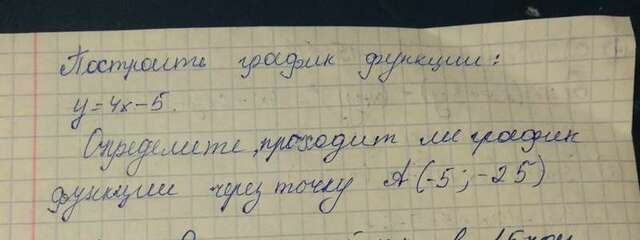 Постройте график функции:
y=4x-5.
Определите, проходит ли график
функции через точку А(-5; -25)